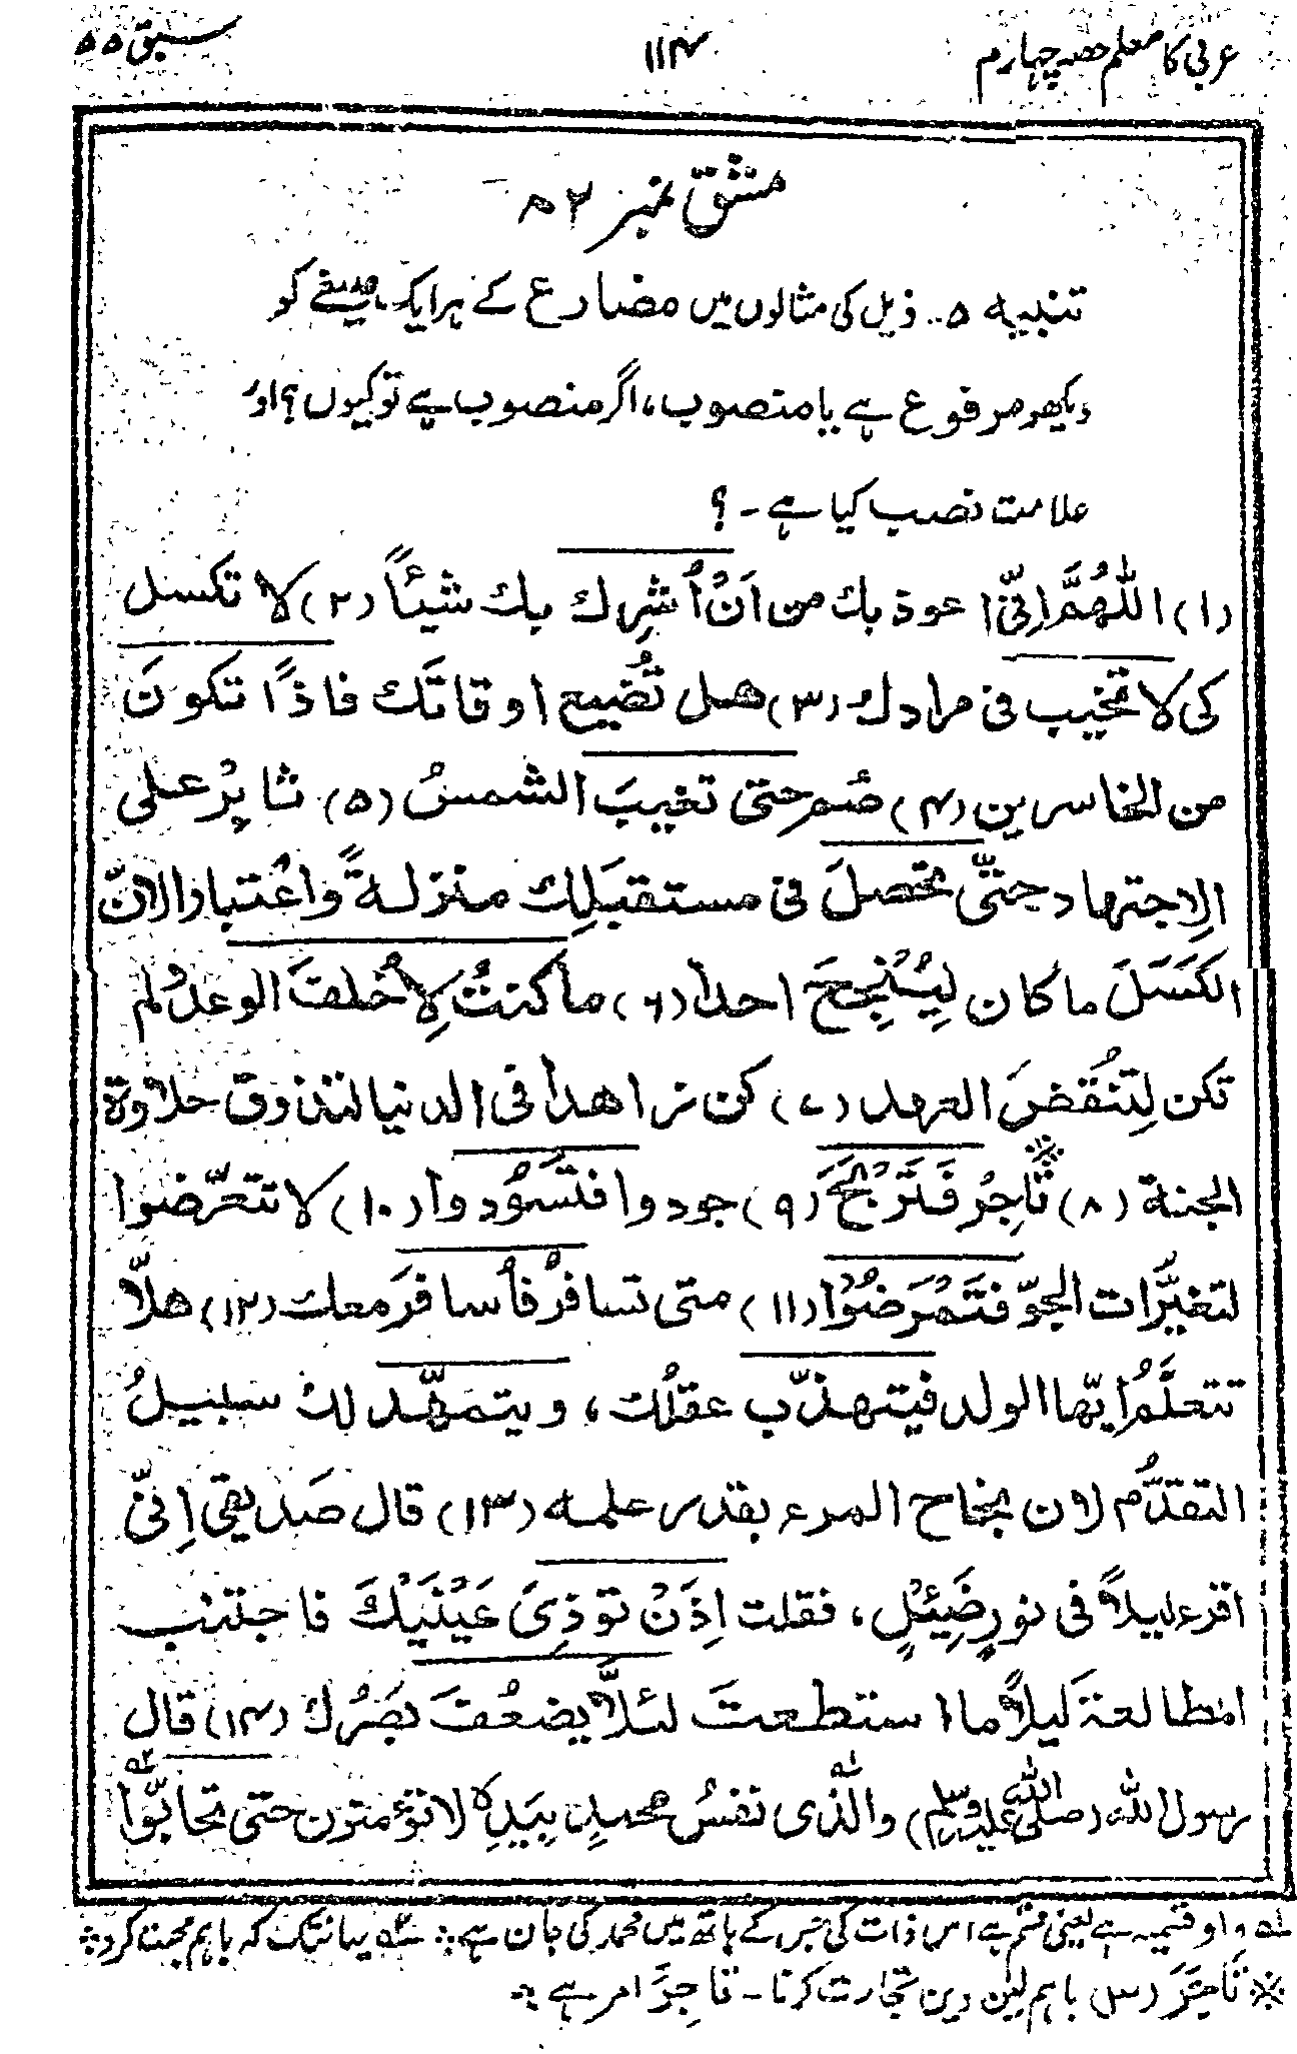 عربی کا معلم حصہ چہارم
۱۱۴
سبق ۵۵
مشق نمبر ۸۲
تنبیہ ۵۔ ذیل کی مثالوں میں مضارع کے ہر ایک صیغے کو
دیکھو مرفوع ہے یا منصوب، اگر منصوب ہے تو کیوں؟ اور
علامت نصب کیا ہے ۔ ؟
(۱) اللّٰهُمَّ اِنِّی اعوذ بك من اَنْ اُشرِك بك شیئاً (۲) لا تکسل
کی لا تخیب فی مرادك (۳) هل تُضیع اوقاتَك فاذًا تکونَ
من الخاسرین (۴) صُم حتی تغیبَ الشمسُ (۵) ثابِرْ علی
الاِجتهاد حتّی تحصلَ فی مستقبَلِك منزلةً واعْتبارا لانّ
الکَسَلَ ما کان لِیُنْجِحَ احداً (۶) ما کنتُ لِاُخلفَ الوعدَ ولم
تکن لِتَنْقُضَ العهد (۷) کن زاهداً فی الدنیا لتذوق حلاوة
الجنة (۸) تَاجِرْ فَتَرْبَحَ (۹) جودوا فتَسُوْدوا (۱۰) لا تتعرّضوا
لتغیّرات الجوّ فتَمْرَضُوْا (۱۱) متی تسافرُ فاُسافرَ معك (۱۲) هلّا
تتعلَّمُ ایّها الولد فیتهذّب عقلُك ، ویتمهّد لك سبیلُ
التقدُّم لان نجاح المرء بقدر علمه (۱۳) قال صَدیقی اِنّی
اقرء لیلاً فی نورٍ ضَئِیْلٍ ، فقلت اِذَنْ توذِیَ عَیْنَیْكَ فاجتنب
المطالعةَ لیلاً ما استطعتَ لئلّا یضعُفَ بصَرُك (۱۴) قال
رسول اللّٰه (صلی اللّٰه علیه وسلم) والّذی نفسُ محمدٍ بِیَدِہ لا تؤمنون حتی تحابّوا
۱؎ واو قسمیہ ہے یعنی قسم ہے اس ذات کی جس کے ہاتھ میں محمد کی جان ہے ۔ ۲؎ یہانتک کہ باہم محبت کرو ۔
※ تَاجَرَ (س) باہم لین دین تجارت کرنا ۔ تاجِرْ امر ہے ۔